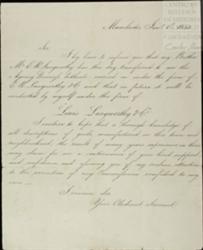 Manchester Jan 1st 1853
Sir,
I beg leave to inform you that my Brother
Mr E. M. Langworthy has this day transferred to me the
Agency Business hitherto carried on under the firm of
E. M. Langworthy & Co and that in future it will be
conducted by myself under the firm of
Lewis Langworthy & Co
I venture to hope that a thorough knowledge of
all descriptions of goods manufactured in this town and
neighbourhood, the result of many years experience in
may secure for me a continuance of your kind support
and confidence and assuring you of my
to the execution of any Commissions confided to my
care
I remain Sir
Your Obedient Servant